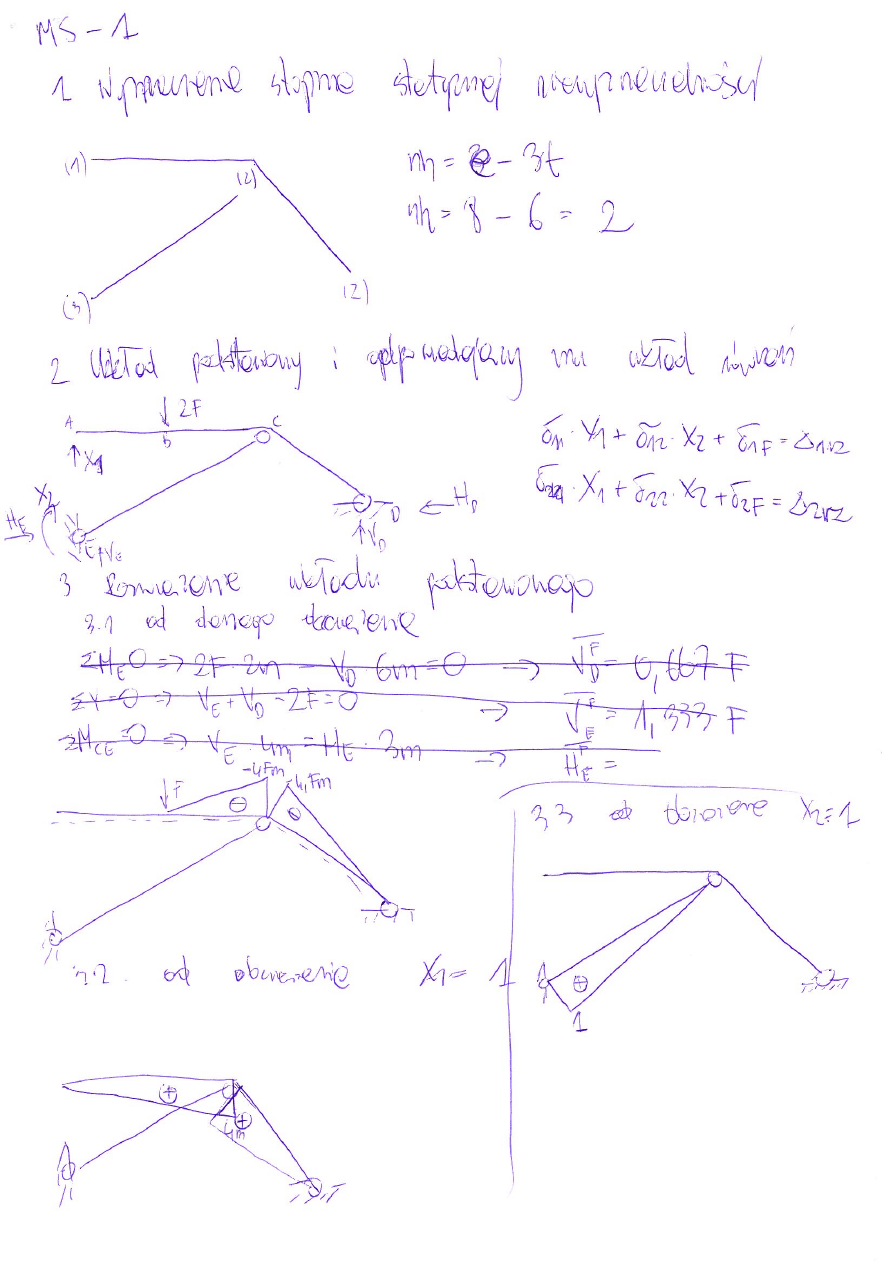 MS-1
1 Wyznaczenie stopnia statycznej niewyznaczalności
(1)
(2)
nh = e - 3t
nh = 8 - 6 = 2
(3)
(2)
2 Układ podstawowy i odpowiadający mu układ równań
A
↓ 2F
C
B
↑X1
δ11·X1 + δ12·X2 + δ1F = Δ1rz
X1 + δ22·X2 + δ2F = Δ2rz
X2
HE
E
↑VE
D
← HD
↑VD
3 Rozwiązanie układu podstawowego
3.1 od danego obciążenia
=> 2F·2m - VD·6m = 0 → VD^F = 0,667 F
ΣY=0 => VE + VD - 2F = 0 → VE^F = 1,333 F
ΣMCE=0 => VE·4m = HE·3m → HE^F =
-4Fm
4Fm
↓F
⊖
⊖
3.3 od obciążenia X2=1
⊕
1
3.2. od obciążenia X1= 1
⊕
⊕
4m